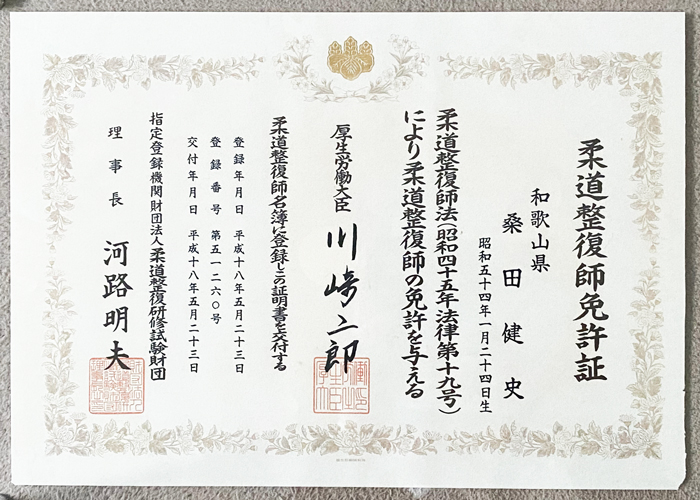 柔道整復師免許証
和歌山県
桑田健史
昭和五十四年一月二十四日生
柔道整復師法(昭和四十五年法律第十九号)
により柔道整復師の免許を与える
厚生労働大臣 川崎二郎
柔道整復師名簿に登録しこの証明書を交付する
登録年月日 平成十八年五月二十三日
登録番号 第五一二六〇号
交付年月日 平成十八年五月二十三日
指定登録機関財団法人柔道整復研修試験財団
理事長 河路明夫